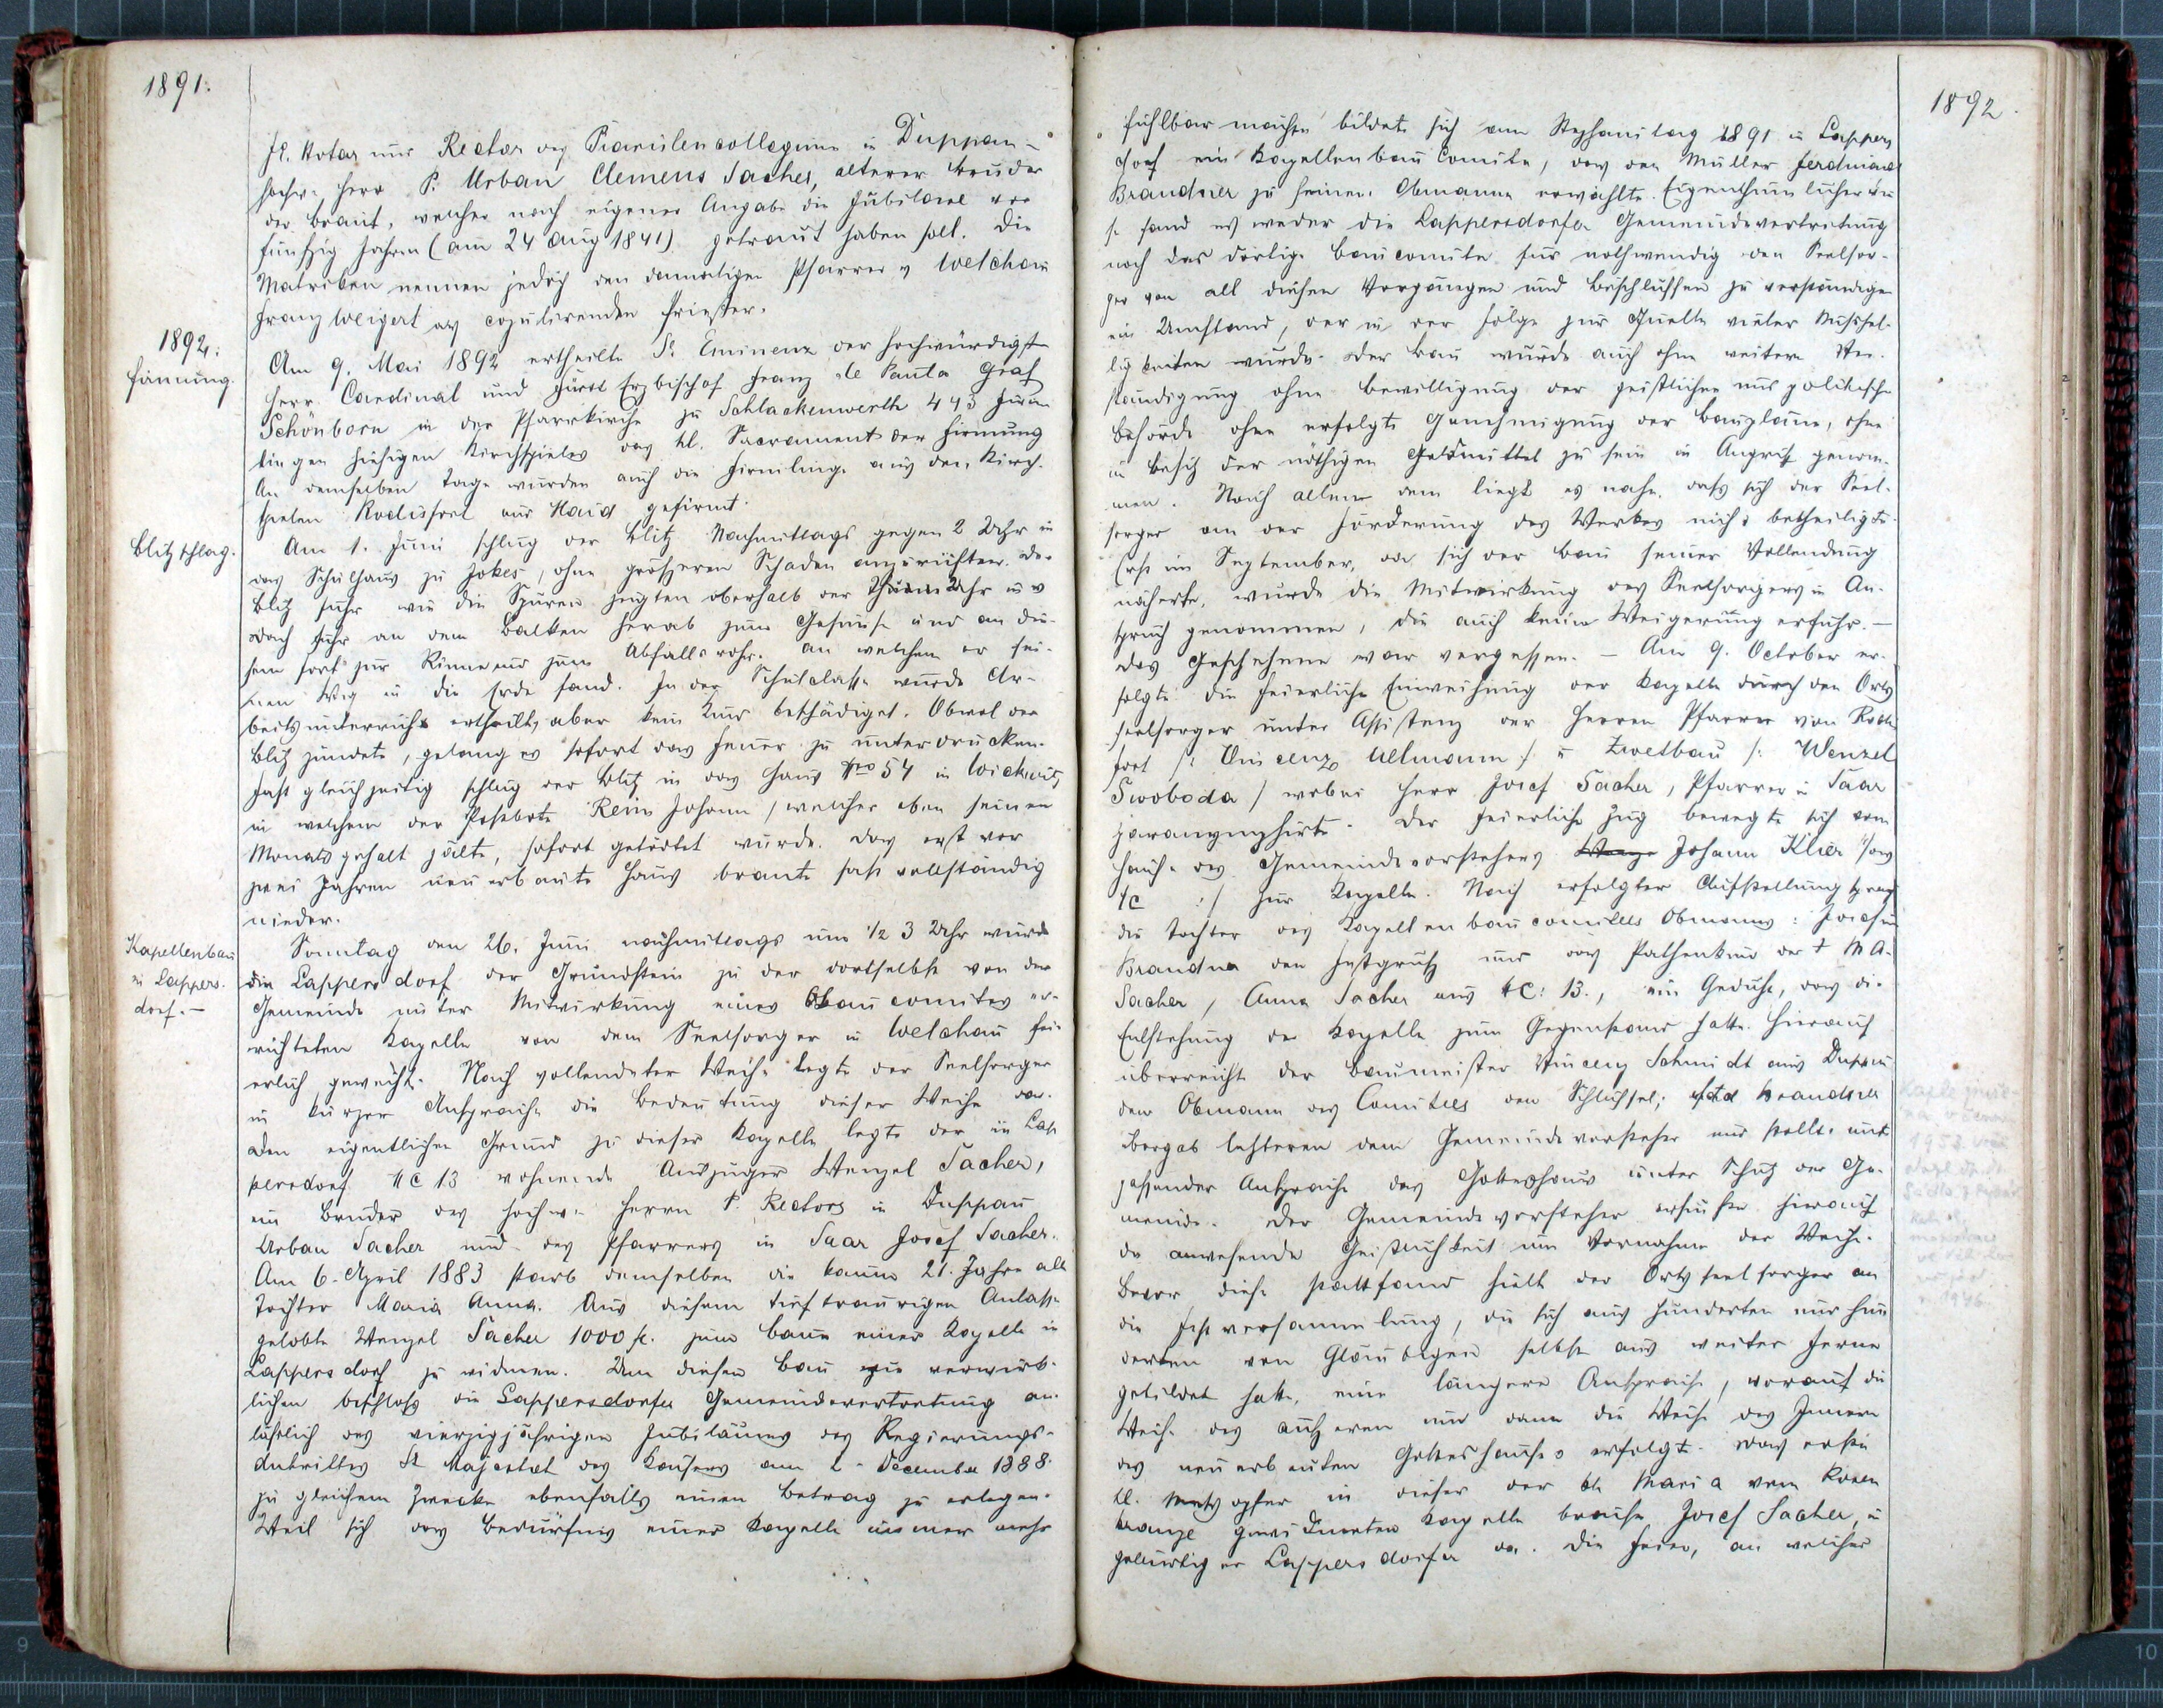 1891.
fl. Notar und Rector des Piaristencollegiums in Duppau –
hochw. Herr P. Urban Clemens Sacher, älterer Bruder
der Braut, welcher nach eigener Angabe die Jubilare vor
fünfzig Jahren (am 24 Aug 1841) getraut haben soll. Die
Matriken nennen jedoch den damaligen Pfarrer v Welchau
Franz Weigert als copulirenden Priester.
1892.
Firmung.
Am 9. Mai 1892 ertheilte Se Eminenz der hochwürdigste
Herr Cardinal und Fürst Erzbischof Franz de Paula Graf
Schönborn in der Pfarrkirche zu Schlackenwerth 443 Firm
lingen hiesigen Kirchspieles das hl. Sacrament der Firmung
An demselben Tage wurden auch die Firmlinge aus den Kirch-
spielen Rodisfort und Haid gefirmt.
Blitzschlag.
Am 1. Juni schlug der Blitz Nachmittags gegen 2 Uhr in
das Schulhaus zu Jokes, ohne größeren Schaden anzurichten. Der
Blitz fuhr wie die Spuren zeigten oberhalb der Thurm Uhr ins
Dach fuhr an dem Balken herab zum Gesimse und an die-
sem fort zur Rinne und zum Abfallsrohr. an welchem er sei-
nen Weg in die Erde fand. In der Schulclasse wurde Ar-
beitsunterricht ertheilt, aber kein Kind beschädiget. Obwol der
Blitz zündete, gelang es sofort das Feuer zu unterdrucken.
Fast gleichzeitig schlug der Blitz in das Haus Nro 54 in Wickwitz
in welchem der Postbote Rein Johann / welcher eben seinen
Monatsgehalt zälte, sofort getödtet wurde. Das erst vor
zwei Jahren neuerbaute Haus brante fast vollständig
nieder.
Kapellenbau
in Lappers-
dorf. –
Sonntag den 26. Juni nachmittags um 1/2 3 Uhr wurde
in Lappersdorf der Grundstein zu der dortselbst von der
Gemeinde unter Mitwirkung eines Baucomites er-
richteten Kapelle von dem Seelsorger in Welchau fei-
erlich geweiht. Nach vollendeter Weihe legte der Seelsorger
in kurzer Ansprache die Bedeutung dieser Weihe dar.
Den eigentlichen Grund zu dieser Kapelle legte der in Lap
persdorf NC 13 wohnende Auszügler Wenzel Sacher,
ein Bruder des hochw. Herrn P. Rectors in Duppau
Urban Sacher und des Pfarrers in Saar Josef Sacher.
Am 6. April 1883 starb demselben die kaum 21. Jahre alte
Tochter Maria Anna. Aus diesem tieftraurigen Anlasse
gelobte Wenzel Sacher 1000 fl. zum Baue einer Kapelle in
Lappersdorf zu widmen. Um diesen Bau zu verwirk-
lichen beschloß die Lappersdorfer Gemeindevertretung an-
läßlich des vierzigjährigen Jubiläums des Regierungs-
antrittes Sr Majestät des Kaisers am 2. December 1888.
zu gleichem Zwecke ebenfalls einen Betrag zu erlegen.
Weil sich das Bedürfnis einer Kapelle immer mehr
1892.
fühlbar machte bildete sich am Stephanitag 1891 in Lappers
dorf ein Kapellenbau Comite, das den Müller Ferdinand
Brandner zu seinem Obmanne erwählte. Eigenthümlicher Wei
se fand es weder die Lappersdorfer Gemeindevertretung
noch das dortige Baucomite für nothwendig den Seelsor-
ger von all diesen Vorgängen und Beschlüssen zu verständigen
ein Umstand, der in der Folge zur Quelle vieler Mißhel-
ligkeiten wurde. Der Bau wurde auch ohne weitere Ver-
ständigung ohne Bewilligung der geistlichen und politischen
Behörde ohne erfolgte Genehmigung der Baupläne, ohne
in Besitz der nöthigen Geldmittel zu sein in Angriff genom-
men. Nach allem dem liegt es nahe, daß sich der Seel-
sorger an der Förderung des Werkes nicht betheiligte.
Erst im September, als sich der Bau seiner Vollendung
näherte, wurde die Mitwirkung des Seelsorgers in An-
spruch genommen, die auch keine Weigerung erfuhr. –
Das Geschehene war vergessen. – Am 9. October er-
folgte die feierliche Einweihung der Kapelle durch den Orts
seelsorger unter Assistenz der Herren Pfarrer von Rodis
fort /: Vincenz Ullmann :/ u Zwetbau /: Wenzel
Swoboda / wobei Herr Josef Sacher, Pfarrer in Saar
paranymphirte. Der feierliche Zug bewegte sich vom
Hause des Gemeindevorstehers Johann Klier
NC :/ zur Kapelle. Nach erfolgter Aufstellung sprach
die Tochter des Kapellenbaucomitees Obmanns: Josefine
Brandner den Festgruß und das Pathenkind der † M A.
Sacher, Anna Sacher aus NC: 13., ein Gedicht, das die
Entstehung der Kapelle zum Gegenstand hatte. Hierauf
überreicht der Baumeister Vincenz Schmidt aus Duppau
dem Obmann des Comitees den Schlüssel; Ferd Brandner
übergab letzteren dem Gemeindevorsteher und stellte mit
passender Ansprache das Gotteshaus unter Schutz der Ge-
meinde. Der Gemeindevorsteher ersuchte hierauf
die anwesende Geistlichkeit um Vornahme der Weihe.
Bevor diese stattfand hielt der Ortsseelsorger an
die Festversammlung, die sich aus Hunderten und Hun
derten von Gläubigen selbst aus weiter Ferne
gebildet hatte, eine längere Ansprache, worauf die
Weihe des äußeren und dann die Weihe des Innern
des neuerbauten Gotteshauses erfolgte. Das erste
hl. Meßopfer in dieser der hl Maria vom Rosen
kranze gewidmeten Kapelle brachte Josef Sacher, ein
gebürtiger Lappersdorfer dar. Die Feier, an welcher